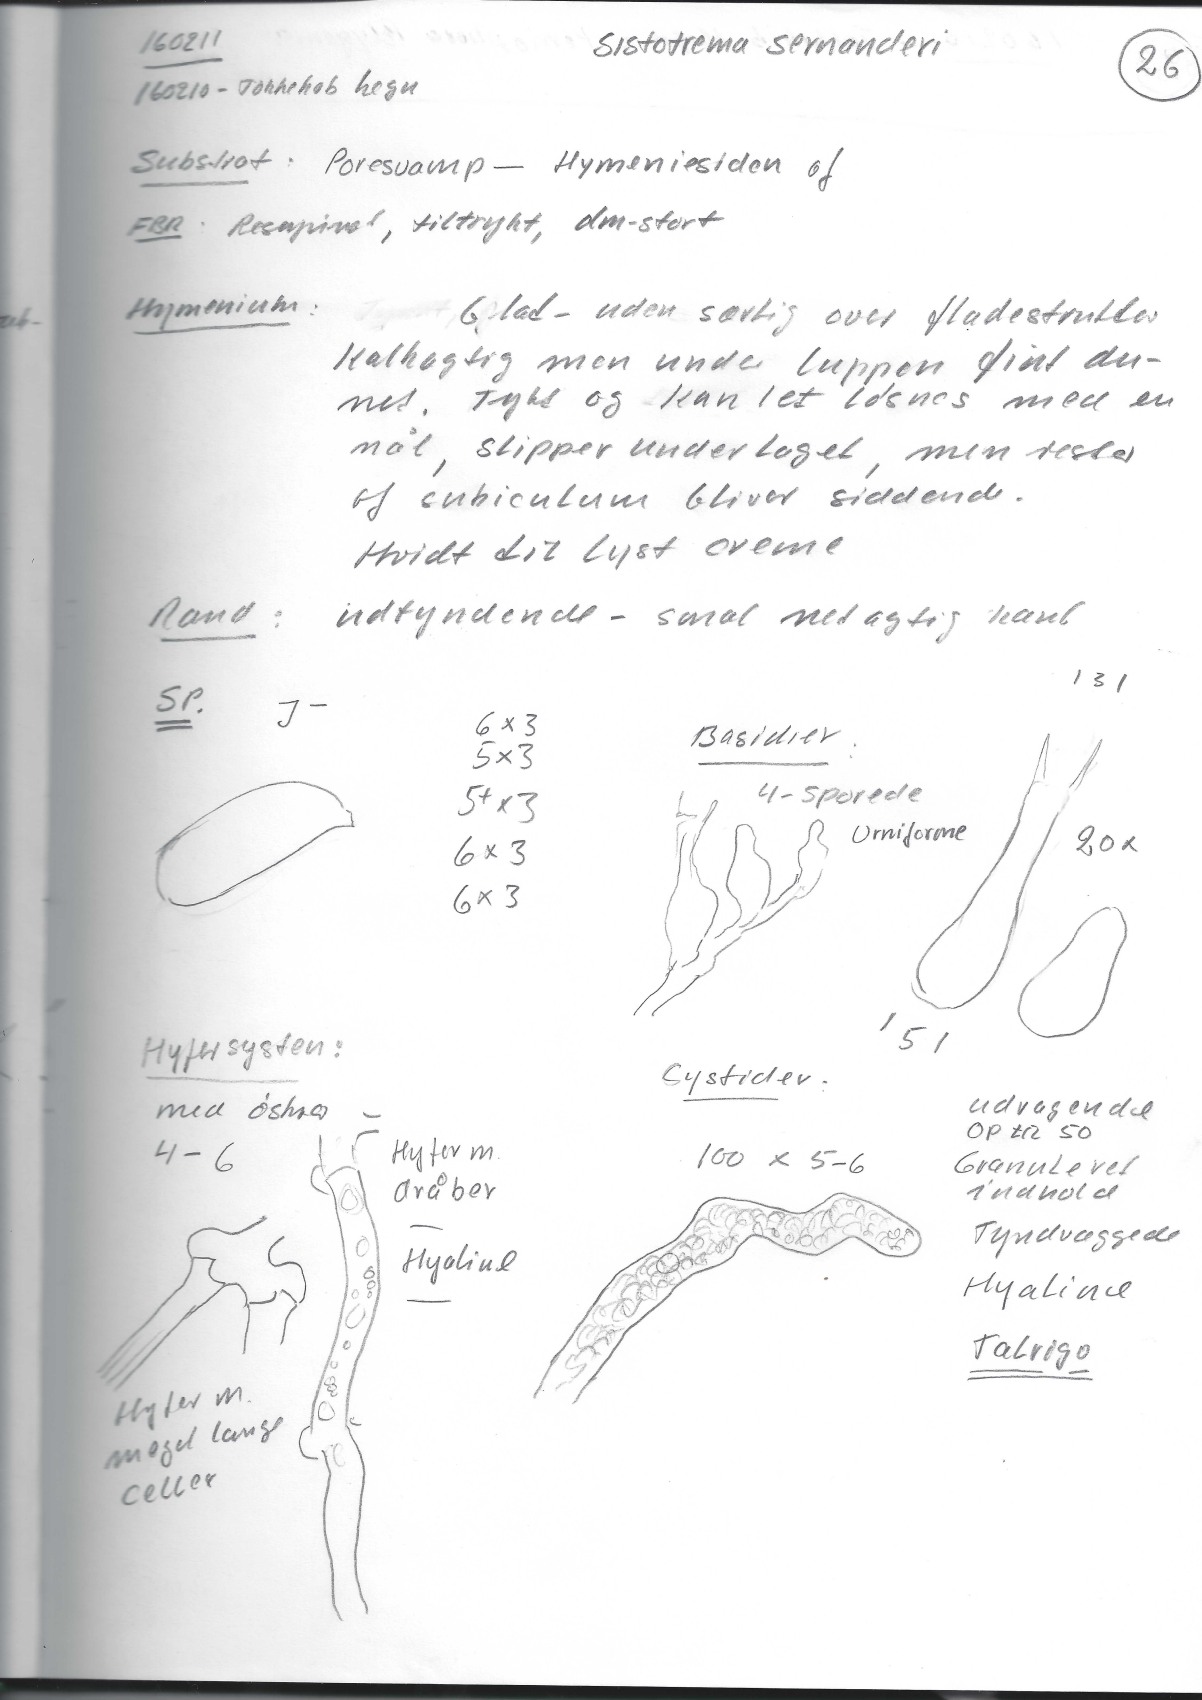 160211
Sistotrema sernanderi
26
160210 - Tokkekob hegn
Substrat: Poresvamp — Hymeniesiden af
FBR: Resupinat, tiltrykt, dm-stort
Hymenium: Glat - uden særlig over fladestruktur
Kalkagtig men under luppen fint du-
net. Tykt og kan let løsnes med en
nål, slipper underlaget, men rester
af subiculum bliver siddende.
Hvidt til lyst creme
Rand: udtyndende - smal netagtig kant
SP. J-
6 x 3
5 x 3
5+ x 3
6 x 3
6 x 3
Basidier:
4-sporede
Urniforme
131
20x
151
Hyfersystem:
med øskner
4-6
Hyfer m.
dråber
Hyaline
Hyfer m.
meget lange
celler
Cystider:
100 x 5-6
udragende
op til 50
Granuleret
indhold
Tyndvæggede
Hyaline
Talrige